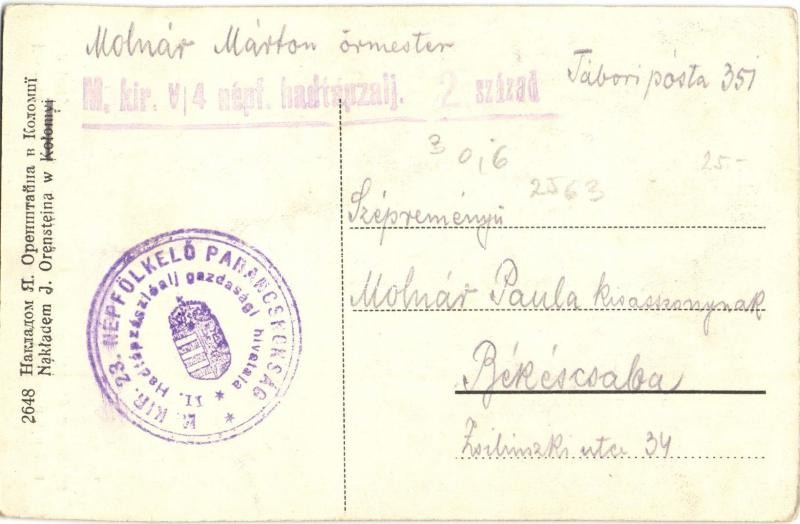 Molnár Márton őrmester
M. kir. V/4 népf. hadtápzalj. 2 század
Tábori pósta 351
30,6
2563
25.-
Szépreményű
Molnár Paula kisasszonynak
Békéscsaba
Zsilinszki utca 34
M. KIR. 23. NÉPFÖLKELŐ PARANCSNOKSÁG
II. Hadtápzászlóalj gazdasági hivatala
2648 Накладом Я. Оренштайна в Коломиї
Nakładem J. Orensteina w Kołomyi